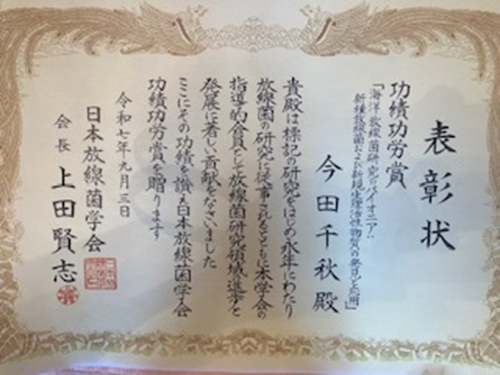 表彰状
功績功労賞
「海洋放線菌研究のパイオニア:
新種放線菌および新規生理活性物質の発見と応用」
今田千秋殿
貴殿は標記の研究をはじめ永年にわたり
放線菌の研究に従事されるとともに本学会の
指導的会員として放線菌研究領域の進歩と
発展に著しい貢献をなさいました
ここにその功績を讃え日本放線菌学会
功績功労賞を贈ります
令和七年九月三日
日本放線菌学会
会長 上田賢志